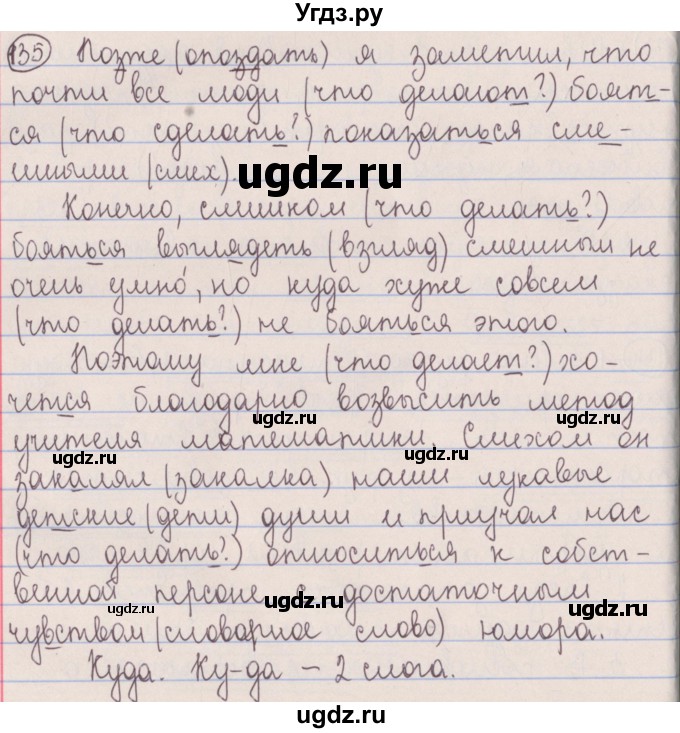 Угдз.ру
135 Позже (опоздать) я заметил, что
почти все люди (что делают?) боят-
ся (что сделать?) показаться сме-
шными (смех).
ugdz.ru
Конечно, слишком (что делать?)
бояться выглядеть (взгляд) смешным не
очень умно́, но куда хуже совсем
(что делать?) не бояться этого.
Поэтому мне (что делает?) хо-
чется благодарно возвысить метод
ugdz.ru ugdz.ru
учителя математики. Смехом он
ugdz.ru
закалял (закалка) наши лукавые
детские (дети) души и приучал нас
ugdz.ru
(что делать?) относиться к собст-
венной персоне с достаточным
ugdz.ru ugdz.ru
чувством (словарное слово) юмора.
Куда. Ку-да – 2 слога.
ugdz.ru